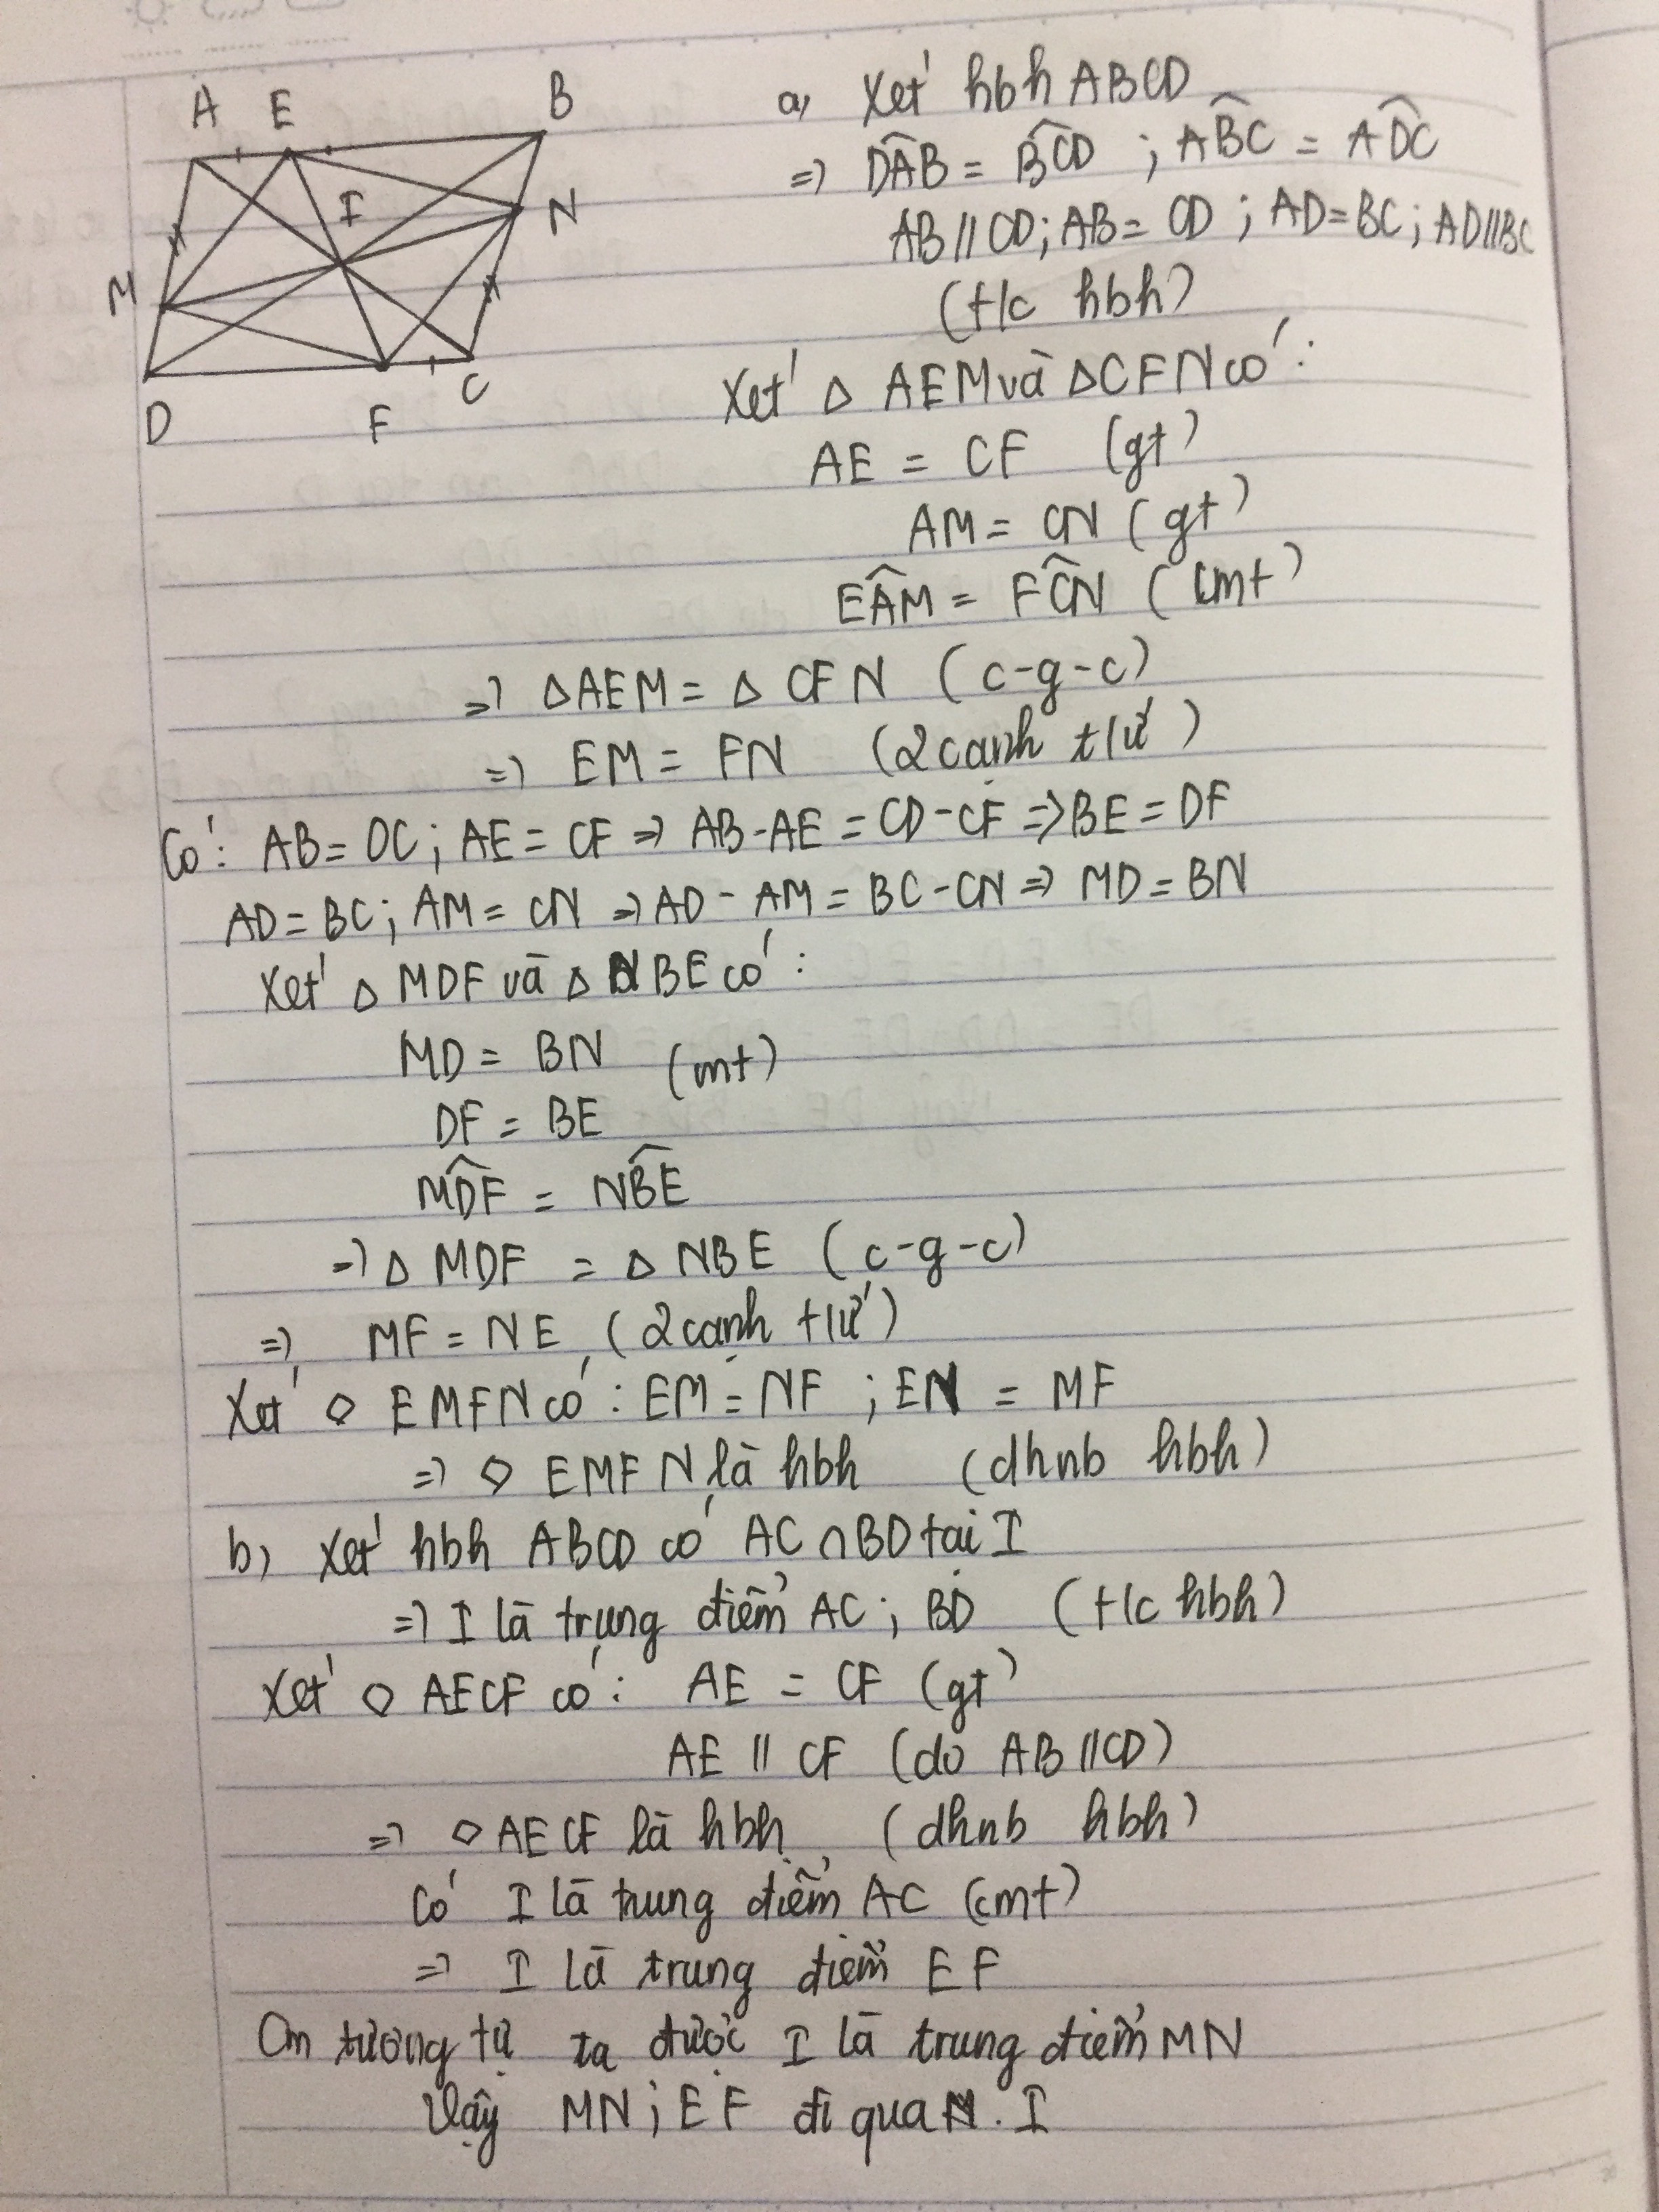 A E B
I N
M
D F C
a, Xét hbh ABCD
=) DÂB = BĈD ; AB̂C = AD̂C
AB // CD; AB = CD ; AD = BC; AD // BC
(t/c hbh)
Xét △ AEM và △CFN có:
AE = CF (gt)
AM = CN (gt)
EÂM = FĈN (cmt)
=) △AEM = △ CFN (c-g-c)
=) EM = FN (2 cạnh t/ứ)
Có: AB = DC; AE = CF => AB - AE = CD - CF => BE = DF
AD = BC; AM = CN => AD - AM = BC - CN => MD = BN
Xét △ MDF và △ NBE có:
MD = BN (mt)
DF = BE
MD̂F = NB̂E
=) △ MDF = △ NBE (c-g-c)
=) MF = NE (2 cạnh t/ứ)
Xét ◇ EMFN có: EM = NF ; EN = MF
=) ◇ EMFN là hbh (dhnb hbh)
b, Xét hbh ABCD có AC ∩ BD tại I
=) I là trung điểm AC; BD (t/c hbh)
Xét ◇ AECF có: AE = CF (gt)
AE // CF (do AB // CD)
=) ◇ AECF là hbh (dhnb hbh)
Có I là trung điểm AC (cmt)
=) I là trung điểm EF
Cm tương tự ta được I là trung điểm MN
Vậy MN; EF đi qua I